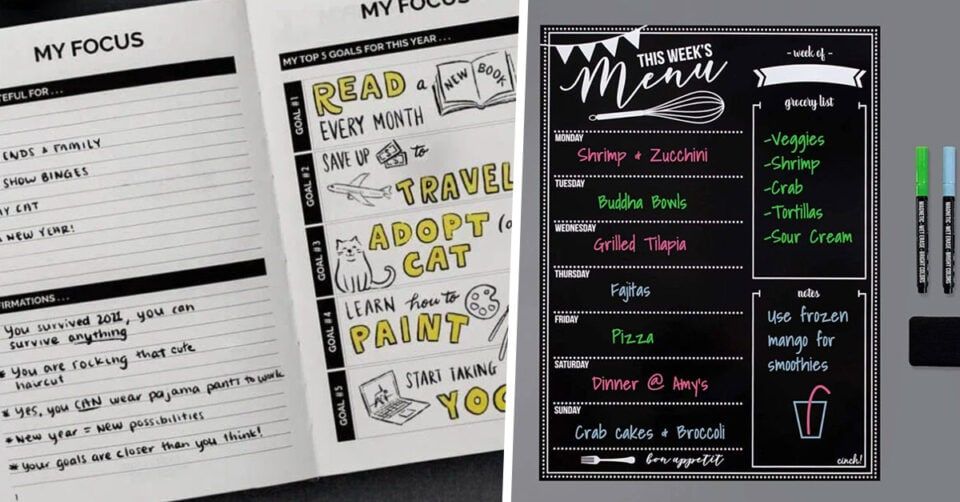 MY FOCUS
ENDS & FAMILY
SHOW BINGES
CAT
NEW YEAR!
You survived 2021, you can
survive anything
* You are rocking that cute
haircut
* Yes, you CAN wear pajama pants to work
* New year = New possibilities
* Your goals are closer than you think!
MY FOCUS
MY TOP 5 GOALS FOR THIS YEAR ...
GOAL #1
READ a NEW BOOK
EVERY MONTH
GOAL #2
SAVE UP to
TRAVEL
GOAL #3
ADOPT
CAT
GOAL #4
LEARN how to
PAINT
GOAL #5
START TAKING
THIS WEEK'S
Menu
MONDAY
Shrimp & Zucchini
TUESDAY
Buddha Bowls
WEDNESDAY
Grilled Tilapia
THURSDAY
Fajitas
FRIDAY
Pizza
SATURDAY
Dinner @ Amy's
SUNDAY
Crab cakes & Broccoli
bon appetit
- week of -
grocery list
-Veggies
-Shrimp
-Crab
-Tortillas
-Sour Cream
notes
Use frozen
mango for
smoothies
cinch!
MAGNETIC · WET ERASE · BRIGHT COLORS
MAGNETIC · WET ERASE · BRIGHT COLORS